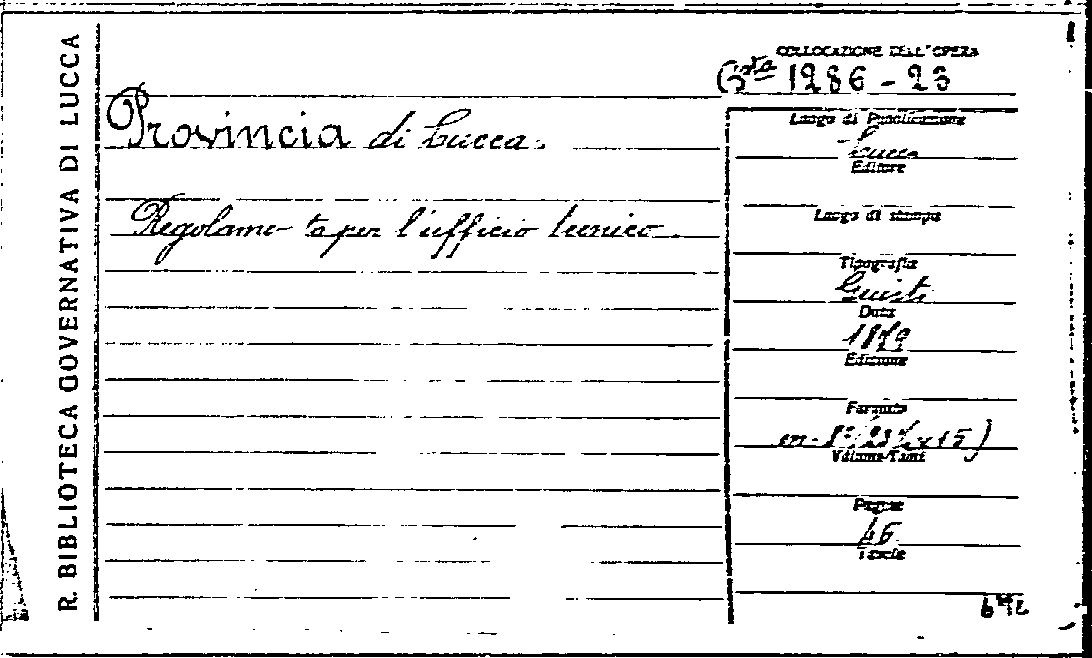 R. BIBLIOTECA GOVERNATIVA DI LUCCA
COLLOCAZIONE DELL'OPERA
Bta 1286 - 23
Provincia di Lucca.
Regolamento per l'ufficio tecnico.
Luogo di Pubblicazione
Lucca
Editore
Luogo di stampa
Tipografia
Giusti
Data
1879
Edizione
Formato
in-8º (23
x 15)
Volume/Tomi
Pagine
46
Tavole